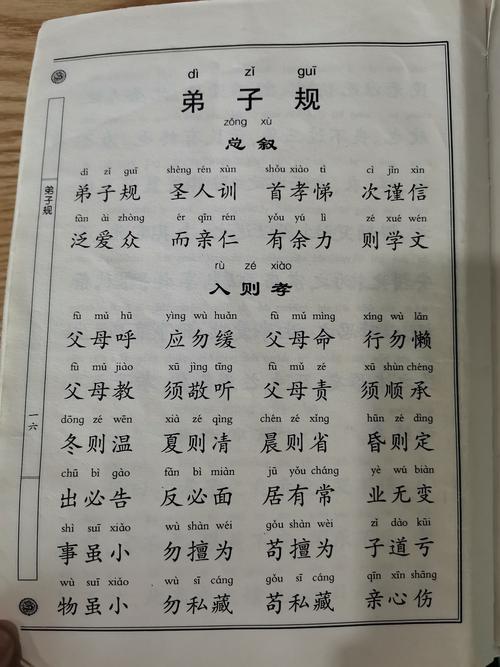 dì zǐ guī
弟子规
zǒng xù
总叙
dì zǐ guī shèng rén xùn shǒu xiào tì cì jǐn xìn
弟子规 圣人训 首孝悌 次谨信
fàn ài zhòng ér qīn rén yǒu yú lì zé xué wén
泛爱众 而亲仁 有余力 则学文
rù zé xiào
入则孝
fù mǔ hū yìng wù huǎn fù mǔ mìng xíng wù lǎn
父母呼 应勿缓 父母命 行勿懒
fù mǔ jiào xū jìng tīng fù mǔ zé xū shùn chéng
父母教 须敬听 父母责 须顺承
dōng zé wēn xià zé qìng chén zé xǐng hūn zé dìng
冬则温 夏则凊 晨则省 昏则定
chū bì gào fǎn bì miàn jū yǒu cháng yè wú biàn
出必告 反必面 居有常 业无变
shì suī xiǎo wù shàn wéi gǒu shàn wéi zǐ dào kuī
事虽小 勿擅为 苟擅为 子道亏
wù suī xiǎo wù sī cáng gǒu sī cáng qīn xīn shāng
物虽小 勿私藏 苟私藏 亲心伤
弟子规
一六